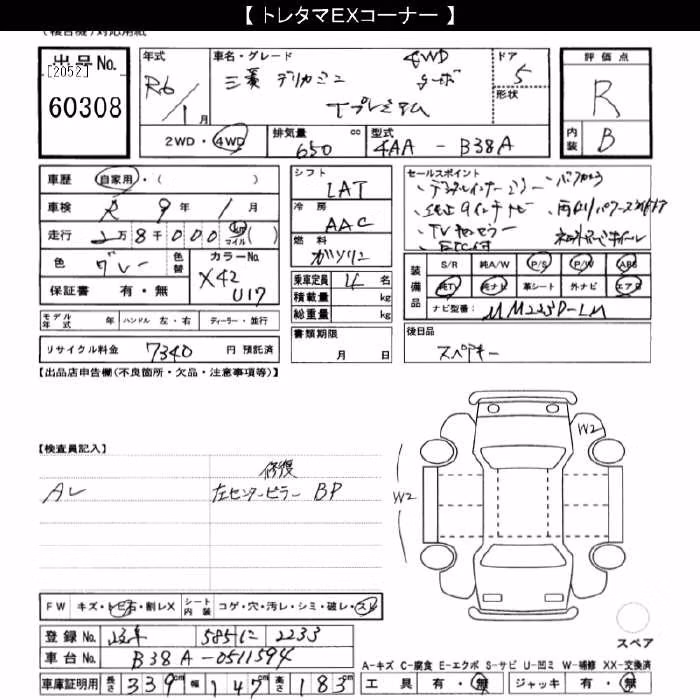 【 トレタマEXコーナー 】
出品No. [2052] 60308
年式 R6/1月
車名・グレード 三菱 デリカミニ 4WD ターボ Tプレミアム
ドア 5
形状
評価点 R
内装 B
2WD・4WD
排気量 650 cc
型式 4AA - B38A
車歴 自家用・( )
車検 R 9年 1月
走行 2万8千000 km マイル ( )
色 グレー 色替
カラーNo. X42 U17
保証書 有・無
モデル年式 年 ハンドル 左・右 ディーラー・並行
リサイクル料金 7340 円 預託済
シフト LAT
冷房 AAC
燃料 ガソリン
乗車定員 4 名
積載量 kg
総重量 kg
書類期限 月 日
セールスポイント
・デジタルインナーミラー ・バックカメラ
・純正9インチナビ
・TVキャンセラー
・ETC付
装備品 S/R 純A/W P/S P/W ABS
純TV 純ナビ 革シート 外ナビ エアB
ナビ型番: MM223D-LM
後日品
スペアキー
【出品店申告欄(不良箇所・欠品・注意事項等)】
【検査員記入】
修復
左センターピラー BP
W2
W2
FW キズ・トビ石・割レX シート内装 コゲ・穴・汚レ・シミ・破レ・スレ
登録No. 585 に 2233
車台No. B38A-0511594
車庫証明用 長さ 339cm 幅 147cm 高さ 183cm
スペア
A-キズ C-腐食 E-エクボ S-サビ U-凹ミ W-補修 XX-交換済
工具 有・無 ジャッキ 有・無